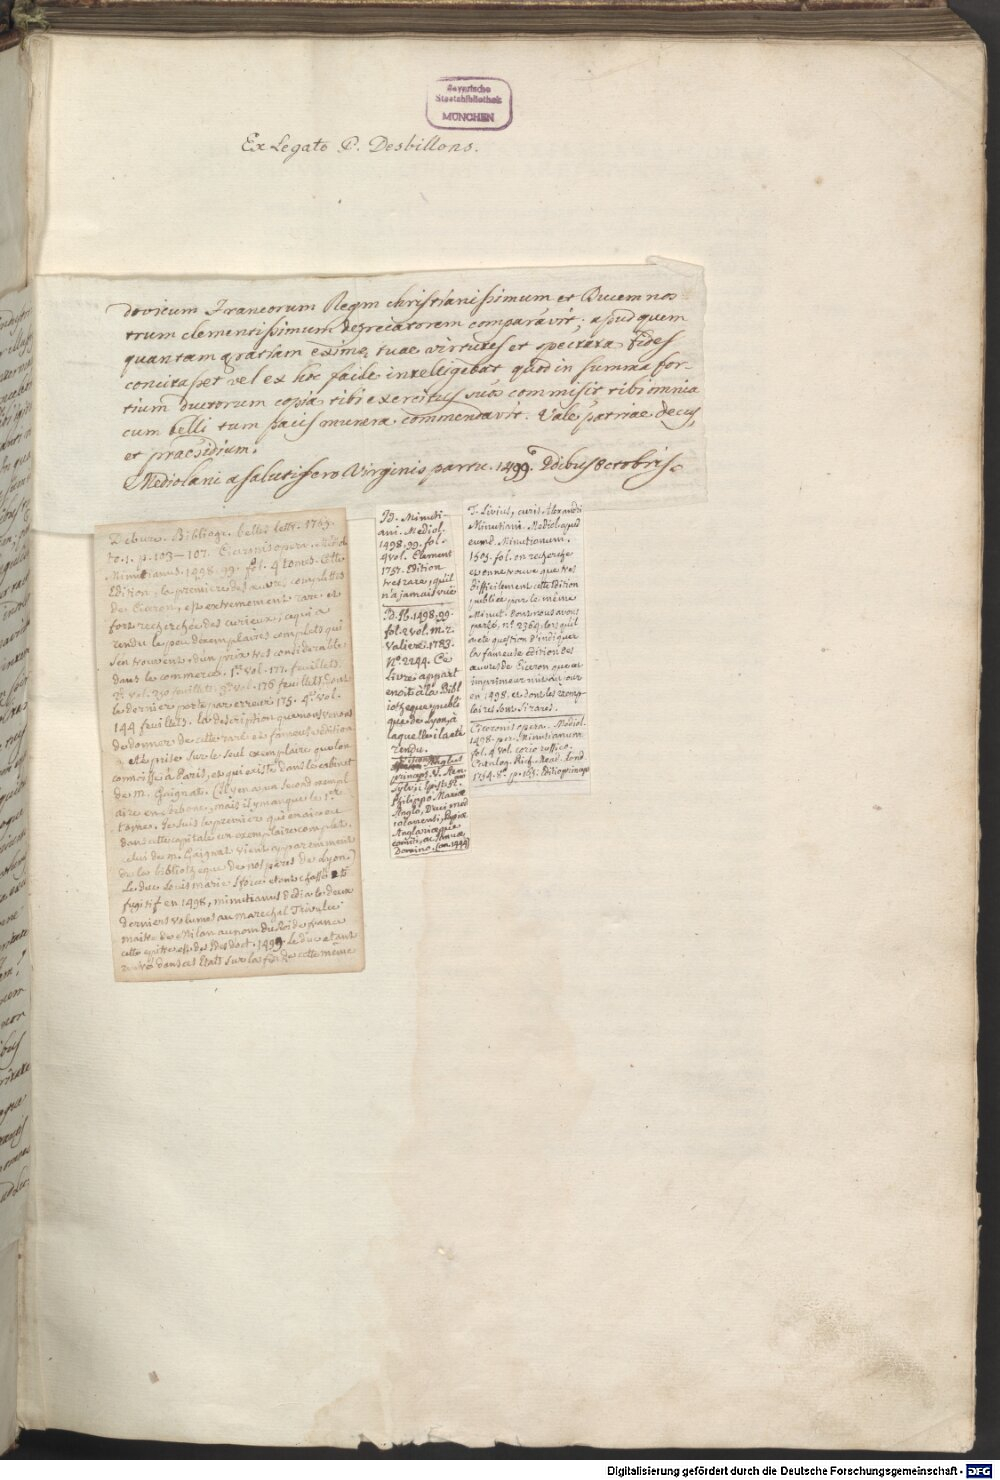 Bayerische
Staatsbibliothek
MÜNCHEN
Ex Legato P. Desbillons.
dovicum Francorum Regem christianissimum et Ducem nos-
trum clementissimum deprecatorem comparavit; apud quem
quantam gratiam eximiae tuae virtutes et spectata fides
concitasset vel ex hoc facile intelligebat quod in summa for-
tium ductorum copia tibi exercitus suos commisit tibi omnia
cum belli tum pacis munera commendavit. Vale patriae decus,
et praesidium.
Mediolani a salutifero Virginis partu. 1499. Idibus Octobris.
Debure. Bibliogr. belles lettr. 1765.
to. 1. p. 103–107. Ciceronis opera. Mediol.
Minutianus. 1498. 99. fol. 4 tomes. Cette
Edition, la premiere des œuvres complettes
de Ciceron, est extremement rare et
fort recherchée des curieux; ce qui a
rendu le peu d'exemplaires complets qui
s'en trouvent, d'un prix tres considerable
dans le commerce. 1r. vol. 177. feuillets.
2d. vol. 230 feuillets. 3e. vol. 176 feuillets dont
le dernier porte par erreur 175. 4e. vol.
144 feuillets. la description que nous venons
de donner de cette rare et fameuse edition
a eté prise sur le seul exemplaire que l'on
connoisse à Paris, et qui existe dans le cabinet
de M. Gaignat. (il y en a un second exempl
aire en sorbone, mais il y manque les 1ers
tomes. Je suis le premier qui en ai eu et
dans cette capitale un exemplaire complet.
celui de M. Gaignat vient apparemment
de la bibliotheque de nos peres de Lyon.)
Le duc Louis marie sforce etant chassé et
fugitif en 1498, minutianus dedia le deux
derniers volumes au marechal Trivulce
maitre de Milan au nom du Roi de france
cette epitre est des Ides d'oct. 1499. le duc etant
rentré dans ses Etats sur la fin de cette même
Id. Minuti-
ani. Mediol.
1498. 99. fol.
4 vol. Clement
1757. Edition
tres rare, qu'il
n'a jamais vue
Id. Ib. 1498. 99.
fol. 2 vol. m. r.
Valiere. 1783.
No. 2244. Ce
Livre appart
enoit à la Bibl
iotheque publi
que de Lyon, à
laquelle il a eté
rendu.
Anglus
princeps. V. Aen.
Sylvii Epist. 81.
Philippo Mariae
Anglo, Duci med
iolanensi, Papiae
Angleriaeque
comiti, ac Genuae
Domino. (an. 1444)
T. Livius, curis Alexandri
Minutiani. Mediol. apud
eumd. Minutianum.
1505. fol. on recherche
et on ne trouve que tres
difficilement cette Edition
publiée par le même
Minut. dont nous avons
parlé, no. 2364, lorsqu'il
a eté question d'indiquer
la fameuse Edition des
œuvres de Ciceron que cet
imprimeur mit au jour
en 1498. et dont les exemp-
laires sont si rares.
Ciceronis opera. Mediol.
1498. per Minutianum.
fol. 4 vol. corio russico.
Catalog. Rich. Mead. Lond.
1754. 8o. p. 165. Editio princeps
Digitalisierung gefördert durch die Deutsche Forschungsgemeinschaft - DFG